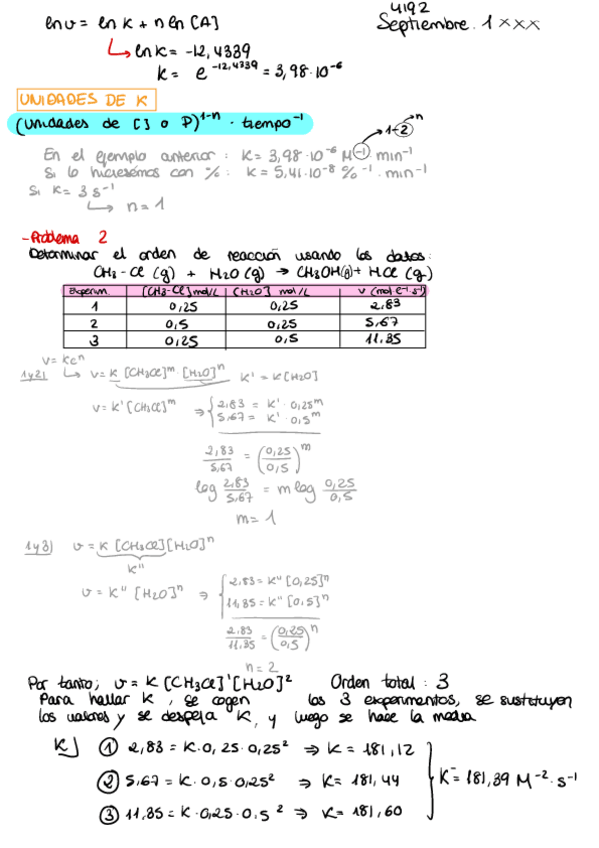 4192
ln v = ln K + n ln [A]
Septiembre. 1 xxx
ln K = -12,4339
K = e^-12,4339 = 3,98·10^-6
UNIDADES DE K
(Unidades de [] o P)^1-n · tiempo^-1
1-2 n
En el ejemplo anterior: K = 3,98·10^-6 M^-1 · min^-1
Si lo hiciésemos con %: K = 5,41·10^-8 %^-1 · min^-1
Si K = 3 s^-1
n = 1
- Problema 2
Determinar el orden de reacción usando los datos:
CH3-Cl (g) + H2O (g) → CH3OH (g) + HCl (g)
Experim. [CH3-Cl] mol/L [H2O] mol/L v (mol l^-1 s^-1)
1 0,25 0,25 2,83
2 0,5 0,25 5,67
3 0,25 0,5 11,35
v = Kc^n
1y2) v = K [CH3Cl]^m [H2O]^n K' = K[H2O]
v = K' [CH3Cl]^m ⇒ { 2,83 = K' · 0,25^m
5,67 = K' 0,5^m
2,83/5,67 = (0,25/0,5)^m
log 2,83/5,67 = m log 0,25/0,5
m = 1
1y3) v = K [CH3Cl][H2O]^n
K''
v = K'' [H2O]^n ⇒ { 2,83 = K'' [0,25]^n
11,35 = K'' [0,5]^n
2,83/11,35 = (0,25/0,5)^n
n = 2
Por tanto; v = K [CH3Cl]^1 [H2O]^2 Orden total: 3
Para hallar K, se cogen los 3 experimentos, se sustituyen
los valores y se despeja K, y luego se hace la media
K) ① 2,83 = K·0,25·0,25² ⇒ K = 181,12
② 5,67 = K·0,5·0,25² ⇒ K = 181,44
K̄ = 181,39 M^-2 · s^-1
③ 11,35 = K·0,25·0,5² ⇒ K = 181,60